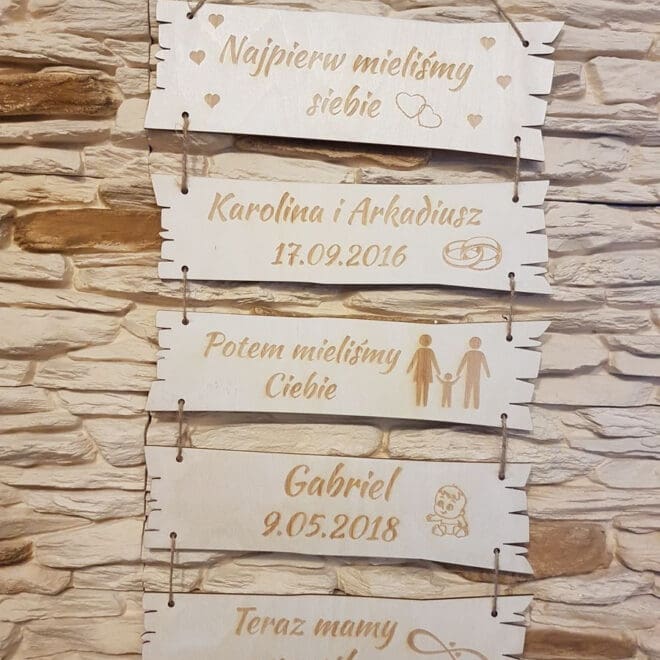 Najpierw mieliśmy
siebie
Karolina i Arkadiusz
17.09.2016
Potem mieliśmy
Ciebie
Gabriel
9.05.2018
Teraz mamy